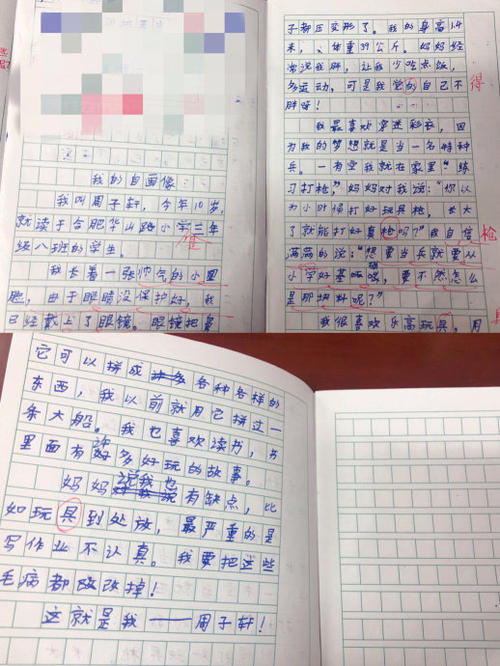 我的自画像
我叫周子轩，今年10岁，
就读于合肥华山路小学三年
级八班的学生。
我长着一张帅气的小黑
脸，由于眼睛没保护好，我
已经戴上了眼镜。眼镜把鼻
子都压变形了。我的身高1.4
米、体重39公斤。妈妈经
常说我胖，让我少吃点饭，
多运动，可是我觉的自己不
得
胖呀！
我最喜欢穿迷彩衣，因
为我的梦想就是当一名特种
兵。一有空我就在家里“练
习打枪”妈妈对我说：“你以
为小时候打好玩具枪，长大
了就能打好真枪吗？”我自信
枪
满满的说：“想要当兵就要从
小学好基础哦，要不然怎么
是那块料呢？”
我很喜欢乐高玩具，用
它可以拼成各种各样的
东西，我以前就用它拼过一
条大船。我也喜欢读书，书
里面有许多好玩的故事。
妈妈说我也有缺点，比
如玩具到处放，最严重的是
写作业不认真。我要把这些
毛病都改改掉！
这就是我——周子轩！